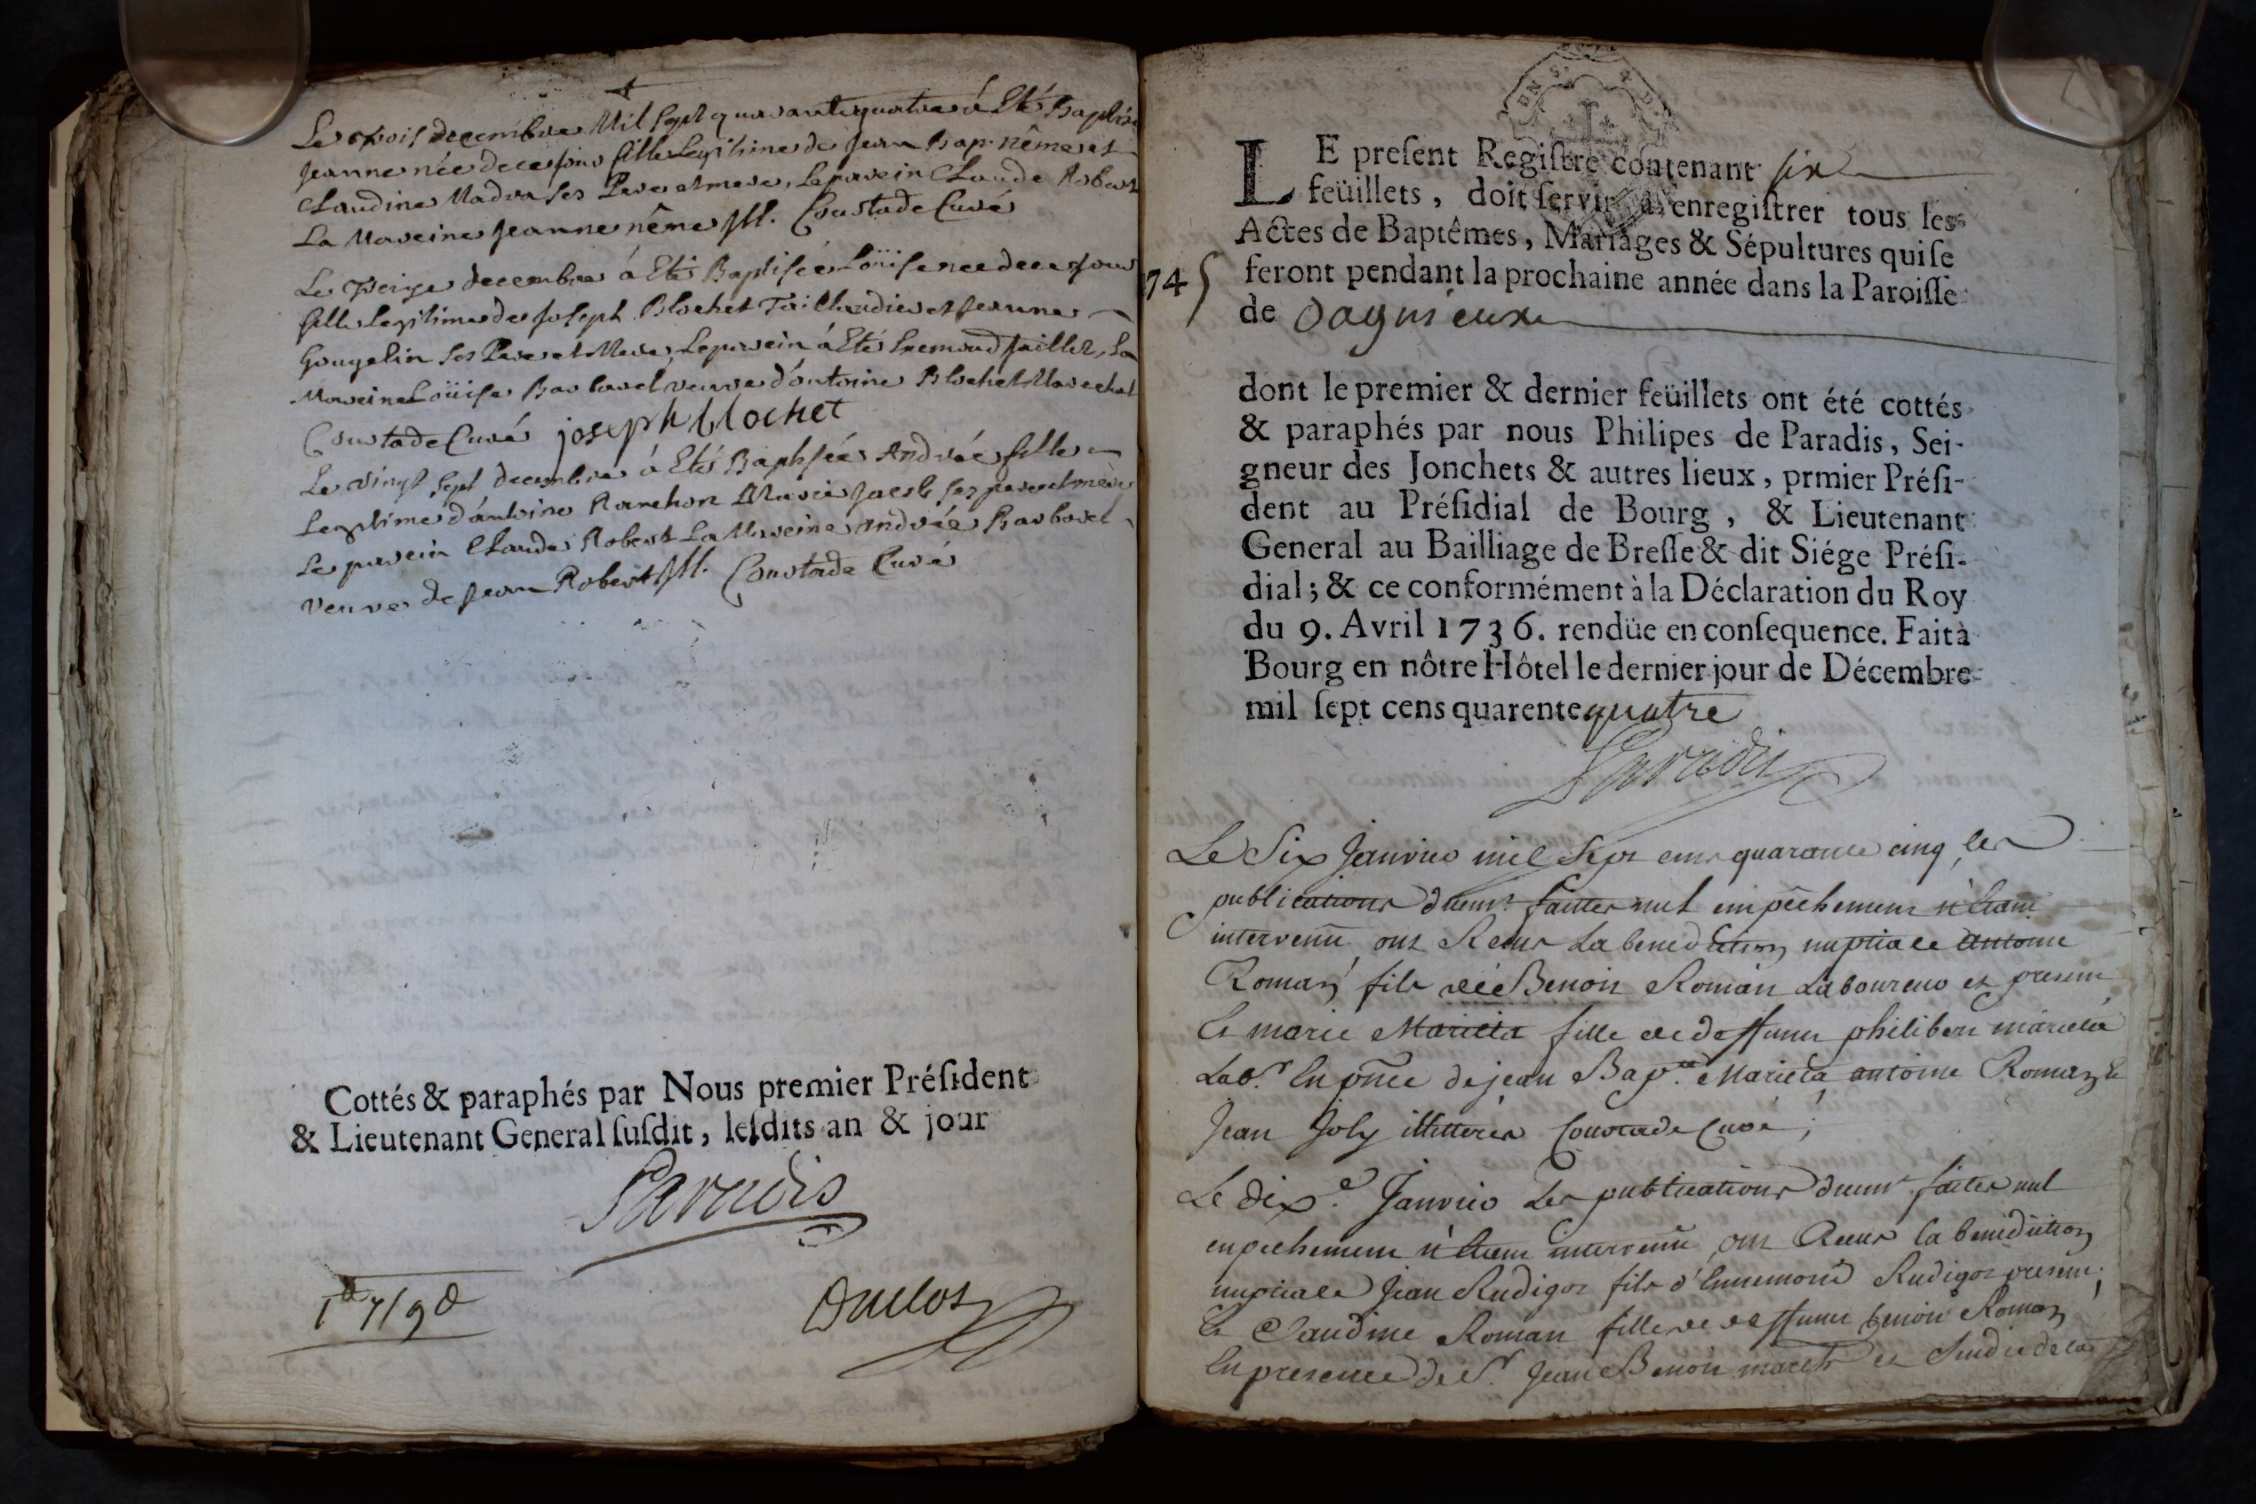 Le trois decembre Mil sept quarante quatre á Eté Baptisée
Jeanne née de ce jour fille legitime de Jean Bap. nême et
Claudine Madra ses Pere et mere, Le parein Claude Robert
La Mareine Jeanne nême Ill. Coustade Curé
Le treize decembre á Eté Baptisée Loüise nee de ce jour
fille legitime de Joseph Blochet et Jeanne
Gougelin ses Pere et Mere, Le parein á Eté La
Mareine Loüise Barbarel veuve d'antoine Blochet Marechal
Coustade Curé joseph blochet
Le vingt sept decembre á Eté Baptisée Andrée fille
Legitime d'antoine Ranchon Marie Jacob ses pere et mere
Le parein Claude Robert La Mareine andrée Barbarel
veuve de Jean Robert Ill. Coustade Curé
Cottés & paraphés par Nous premier Président
& Lieutenant General susdit, lesdits an & jour
Paradis
Duclos
745
LE present Registre contenant six
feüillets, doit servir à enregistrer tous les
Actes de Baptêmes, Mariages & Sépultures qui se
feront pendant la prochaine année dans la Paroisse
de Dagnieux
dont le premier & dernier feüillets ont été cottés
& paraphés par nous Philipes de Paradis, Sei-
gneur des Jonchets & autres lieux, prmier Prési-
dent au Présidial de Bourg, & Lieutenant
General au Bailliage de Bresse & dit Siége Prési-
dial; & ce conformément à la Déclaration du Roy
du 9. Avril 1736. rendüe en consequence. Fait à
Bourg en nôtre Hôtel le dernier jour de Décembre
mil sept cens quarente quatre
Paradis
Le Six Janvier mil Sept cens quarante cinq les
publications duem.t faittes nul empêchement n'étant
intervenu ont Receus La benediction nuptiale Antoine
Roman fils de Benoit Roman Laboureur et present
Et marie Marieta fille de deffunt philibert marieta
Lab.r En pnce de jean Bap.te Marieta antoine Roman Et
Jean Joly illitterés Coustade Curé;
Le dix.e Janvier Les publications duem.t faites nul
enpechement n'étant intervenu ont Receus la benediction
nuptiale Jean Rudigoz fils d'Ennemond Rudigoz present;
Et Claudine Roman fille de deffunt benoit Roman
En presence de S.r Jean Benoit march et Sindic de la